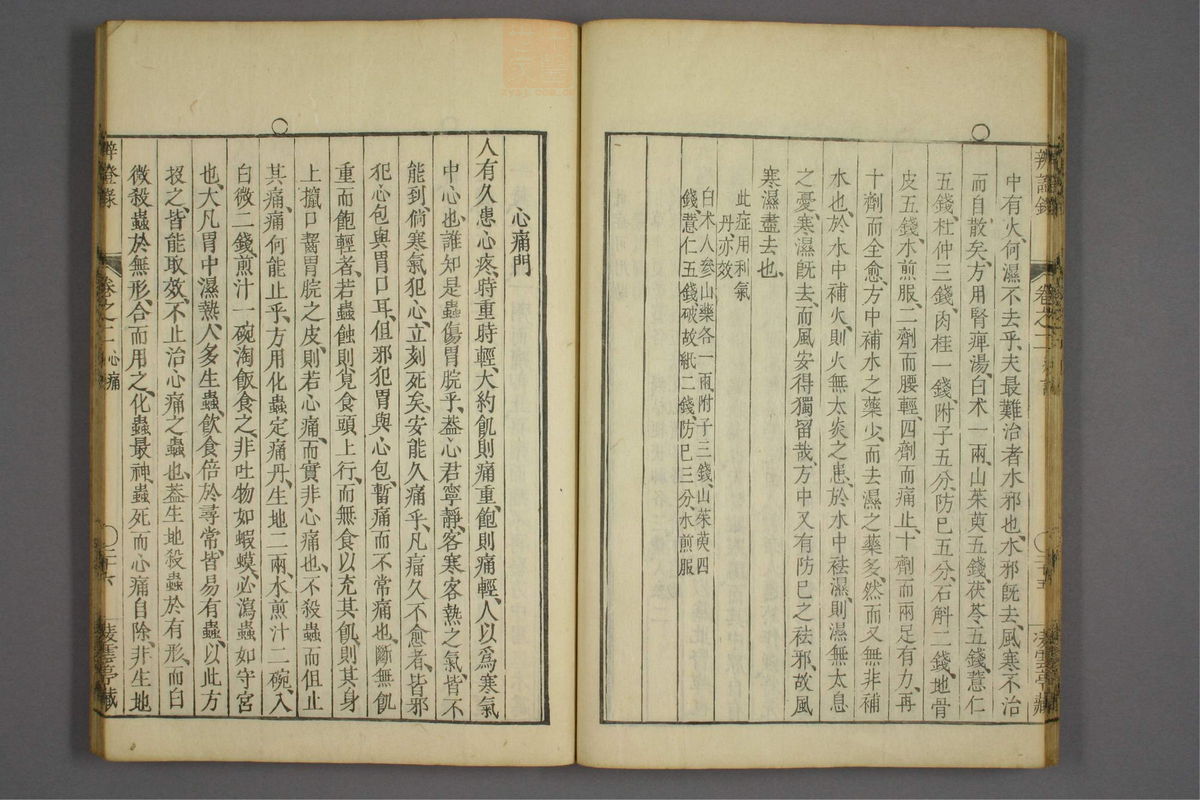 中有火、何濕不去乎、夫最難治者水邪也、水邪旣去、風寒不治
而自散矣、方用腎痺湯、白术一兩、山茱萸五錢、茯苓五錢、薏仁
五錢、杜仲三錢、肉桂一錢、附子五分、防巳五分、石斛二錢、地骨
皮五錢、水煎服、二劑而腰輕、四劑而痛止、十劑而兩足有力、再
十劑而全愈、方中補水之藥少、而去濕之藥多、然而又無非補
水也、於水中補火、則火無太炎之患、於水中祛濕、則濕無太息
之憂、寒濕旣去、而風安得獨留哉、方中又有防巳之祛邪、故風
寒濕盡去也、
此症用利氣
丹、亦效
白术人參山藥各一兩、附子三錢、山茱萸四
錢、薏仁五錢、破故紙二錢、防巳三分、水煎服
心痛門
人有久患心疼、時重時輕、大約飢則痛重、飽則痛輕、人以爲寒氣
中心也、誰知是蟲傷胃脘乎、葢心君寧靜、客寒客熱之氣、皆不
能到、倘寒氣犯心、立刻死矣、安能久痛乎、凡痛久不愈者、皆邪
犯心包與胃口耳、但邪犯胃與心包、暫痛而不常痛也、斷無飢
重而飽輕者、若蟲蝕則覓食頭上行、而無食以充其飢、則其身
上攛口齧胃脘之皮、則若心痛、而實非心痛也、不殺蟲而但止
其痛、痛何能止乎、方用化蟲定痛丹、生地二兩水煎汁二碗、入
白微二錢、煎汁一碗淘飯食之、非吐物如蝦蟆、必瀉蟲如守宮
也、大凡胃中濕熱、人多生蟲、飲食倍於尋常、皆易有蟲、以此方
投之、皆能取效、不止治心痛之蟲也、葢生地殺蟲於有形、而白
微殺蟲於無形、合而用之、化蟲最神、蟲死而心痛自除、非生地
辨證錄
卷之二 心痛
二十六
凌雲亭藏